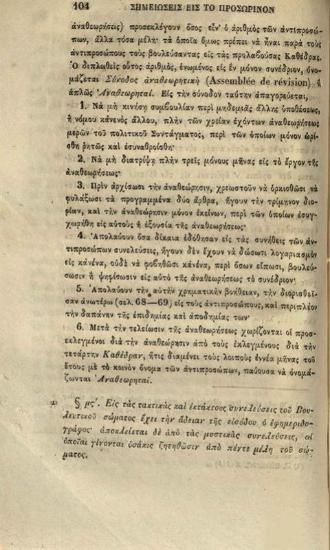 404 ΣΗΜΕΙΩΣΕΙΣ ΕΙΣ ΤΟ ΠΡΟΣΩΡΙΝΟΝ
ἀναθεωρήσεως) προσεκλέγουν ὅσος εἶν' ὁ ἀριθμὸς τῶν ἀντιπροσώ-
πων, ἄλλα τόσα μέλη· τὰ ὁποῖα ὅμως πρέπει νὰ ἦναι παρὰ τοὺς
ἀντιπροσώπους τοὺς βουλεύσαντας εἰς τὰς προλαβούσας Καθέδρας.
Ὁ διπλωθεὶς οὗτος ἀριθμὸς, ἑνωμένος εἰς ἓν μόνον συνέδριον, ὀνο-
μάζεται Σύνοδος ἀναθεωρητικὴ (Assemblée de révision) ἢ
ἁπλῶς Ἀναθεωρηταί. Εἰς τὴν σύνοδον ταύτην ἀπαγορεύεται,
1. Νὰ μὴ κινήσῃ συμβουλίαν περὶ μηδεμιᾶς ἄλλης ὑποθέσεως,
ἢ νόμου κἀνενὸς ἄλλου, πλὴν τῶν χρείαν ἐχόντων ἀναθεωρήσεως
μερῶν τοῦ πολιτικοῦ Συντάγματος, περὶ τῶν ὁποίων μόνον ὡρί-
σθη ῥητῶς καὶ ἐσυναθροίσθη·
2. Νὰ μὴ διατρίψῃ πλὴν τρεῖς μόνους μῆνας εἰς τὸ ἔργον τῆς
ἀναθεωρήσεως·
3. Πρὶν ἀρχίσωσι τὴν ἀναθεώρησιν, χρεωστοῦν νὰ ὁρκισθῶσι νὰ
φυλάξωσι τὰ προγραμμένα δύο ἄρθρα, ἤγουν τὴν τρίμηνον διο-
ρίαν, καὶ τὴν ἀναθεώρησιν μόνον ἐκείνων, περὶ τῶν ὁποίων ἐσυγ-
χωρήθη εἰς αὐτοὺς ἡ ἐξουσία τῆς ἀναθεωρήσεως·
4. Ἀπολαύουν ὅσα δίκαια ἐδόθησαν εἰς τὰς συνήθεις τῶν ἀν-
τιπροσώπων συνελεύσεις, ἤγουν δὲν ἔχουν νὰ δώσωσι λογαριασμὸν
εἰς κἀνένα, οὐδὲ νὰ φοβηθῶσι κἀνένα, περὶ ὅσων εἴπωσι, βουλεύσω-
σιν ἢ ψηφίσωσιν εἰς αὐτὸ τῆς ἀναθεωρήσεως τὸ συνέδριον·
5. Ἀπολαύουν τὴν αὐτὴν χρηματικὴν βοήθειαν, τὴν διορισθεῖ-
σαν ἀνωτέρω (σελ. 68—69) εἰς τοὺς ἀντιπροσώπους, καὶ περιπλέον
τὴν δαπάνην τῆς ἐπιδημίας καὶ ἀποδημίας των·
6. Μετὰ τὴν τελείωσιν τῆς ἀναθεωρήσεως χωρίζονται οἱ προσ-
εκλεγμένοι διὰ τὴν ἀναθεώρησιν ἀπὸ τοὺς ἐκλεγμένους διὰ τὴν
τετάρτην Καθέδραν, ἥτις διαμένει τοὺς λοιποὺς ἐννέα μῆνας τοῦ
ἔτους μὲ τὸ κοινὸν ὄνομα τῶν ἀντιπροσώπων, παύουσα νὰ ὀνομά-
ζωνται Ἀναθεωρηταί.
§ μςʹ. Εἰς τὰς τακτικὰς καὶ ἐκτάκτους συνελεύσεις τοῦ Βου-
λευτικοῦ σώματος ἔχει τὴν ἄδειαν τῆς εἰσόδου ὁ ἐφημεριδο-
γράφος· ἀποκλείεται δὲ ἀπὸ τὰς μυστικὰς συνελεύσεις, αἱ
ὁποῖαι γίνονται ὁσάκις ζητηθῶσιν ἀπὸ πέντε μέλη τοῦ σώ-
ματος.